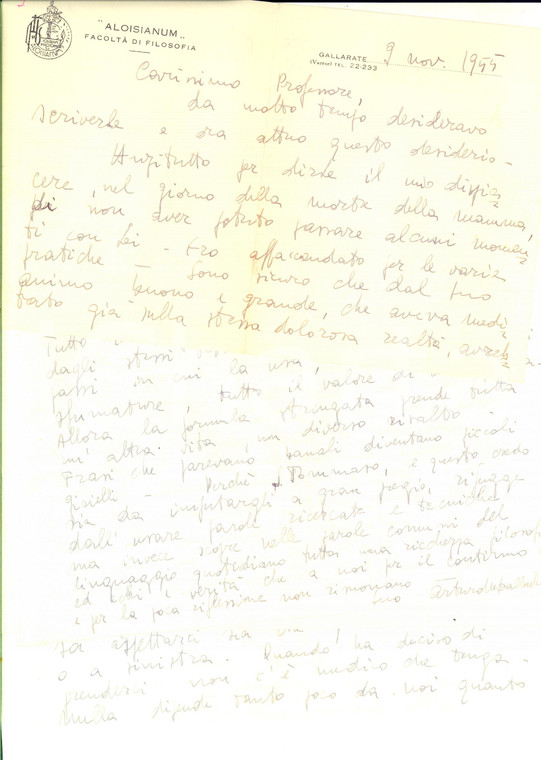 "ALOISIANUM"
FACOLTÀ DI FILOSOFIA
GALLARATE
(Varese) TEL. 22-233
9 nov. 1955
Carissimo Professore,
da molto tempo desideravo
scriverle e ora attuo questo desiderio -
Anzitutto per dirle il mio dispia=
cere, nel giorno della morte della mamma,
di non aver potuto passare alcuni momen=
ti con Lei - Ero affaccendato per le varie
pratiche - Sono sicuro che dal suo
animo buono e grande, che aveva medi=
tato già sulla stessa dolorosa realtà, avreb=
Tutto
dagli stessi
passi in cui la usa,
sfumature, tutto il valore di
Allora la formula strungata prende tutta
un'altra vita, un diverso risalto -
Frasi che parevano banali diventano piccoli
gioielli - Perchè S. Tommaso, e questo credo
sia da imputargli a gran pregio, rifugge
dall'usare parole ricercate e tecniche
ma invece scopre nelle parole comuni del
linguaggio quotidiano tutta una ricchezza filosofica
ed echi e verità che a noi per il continuo
e per la poca riflessione non rimangono
suo Arturo
sa aspettarci sia
o a sinistra. Quando ha deciso di
prenderci non c'è medico che tenga -
Nulla dipende tanto poco da noi quanto